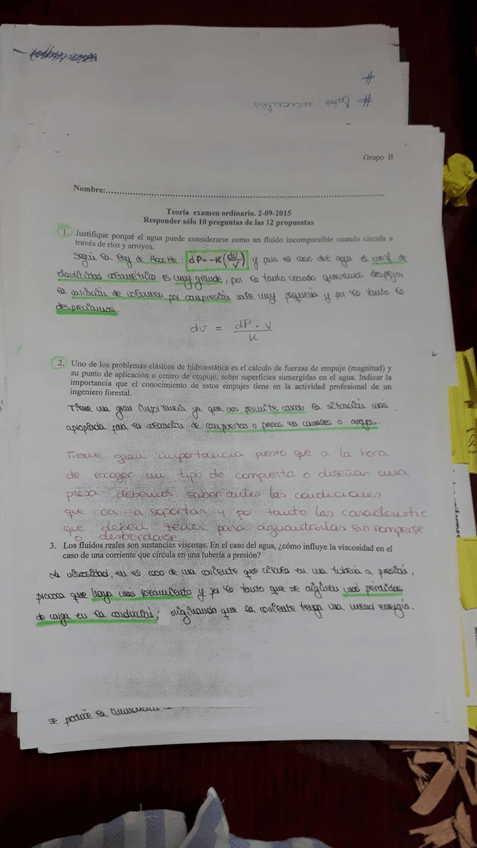 Grupo B
Nombre:
Teoría examen ordinario. 2-09-2015
Responder sólo 10 preguntas de las 12 propuestas
1. Justifique porqué el agua puede considerarse como un fluido incompresible cuando circula a
través de ríos y arroyos.
Según la ley de : dP = -K(dv/v) y para el caso del agua el coef. de
elasticidad volumétrico es muy grande, por lo tanto cuando queremos despejar
la variación de volumen por compresión sale muy pequeña y por lo tanto lo
despreciamos.
dv = dP · v / K
2. Uno de los problemas clásicos de hidrostática es el cálculo de fuerzas de empuje (magnitud) y
su punto de aplicación o centro de empuje, sobre superficies sumergidas en el agua. Indicar la
importancia que el conocimiento de estos empujes tiene en la actividad profesional de un
ingeniero forestal.
Tiene una gran importancia ya que nos permite la situación mas
apropiada para la de compuertas o presas en canales o
Tiene gran importancia puesto que a la hora
de escoger un tipo de compuerta o diseñar una
presa debemos saber antes las condiciones
que va a soportar y por tanto las caracteristic
que deben tener para aguantarlas sin romperse
o desbordarse.
3. Los fluidos reales son sustancias viscosas. En el caso del agua, ¿cómo influye la viscosidad en el
caso de una corriente que circula en una tubería a presión?
La viscosidad, en el caso de una corriente que circula en una tubería a presión,
provoca que haya un rozamiento y por lo tanto que se originen unas pérdidas
de carga en la conducción; originando que la corriente tenga una menor energía.
se produce la